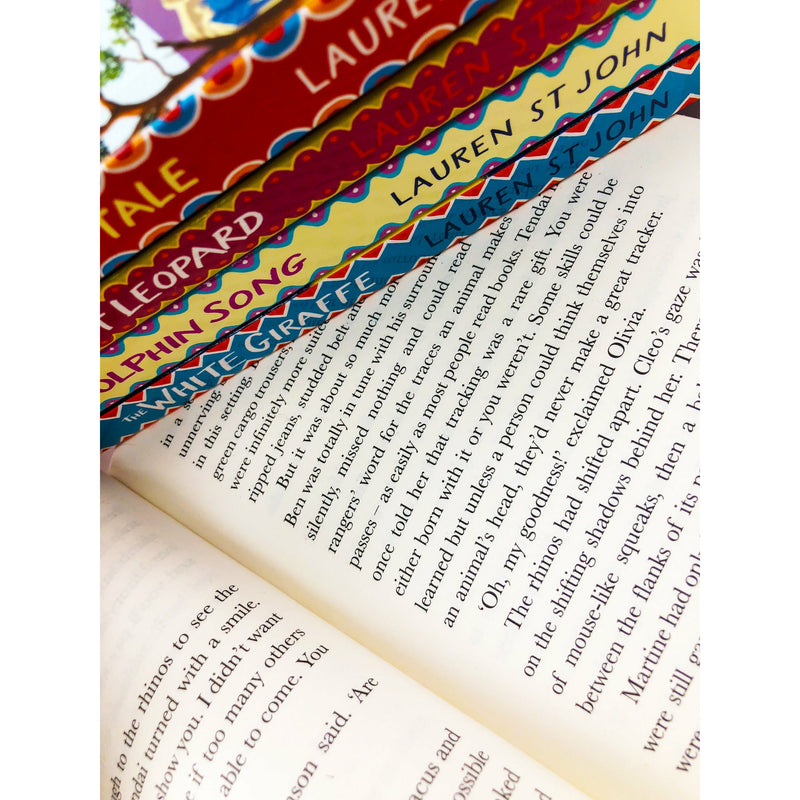 LAUREN
TALE
LAUREN ST JOHN
LEOPARD
LAUREN ST JOHN
DOLPHIN SONG
LAUREN ST JOHN
THE WHITE GIRAFFE
to the rhinos to see the
turned with a smile.
show you. I didn't want
if too many others
able to come. You
said. 'Are
and
in a
unnerving.
in this setting.
green cargo trousers,
were infinitely more
ripped jeans, studded belt and
But it was about so much more
Ben was totally in tune with his
silently, missed nothing and could read
rangers' word for the traces an animal makes
passes – as easily as most people read books. Tendai
once told her that tracking was a rare gift. You were
either born with it or you weren't. Some skills could be
learned but unless a person could think themselves into
an animal's head, they'd never make a great tracker.
'Oh, my goodness!' exclaimed Olivia.
The rhinos had shifted apart. Cleo's gaze was
on the shifting shadows behind her. There
of mouse-like squeaks, then a
between the flanks of its
Martine had only
were still
were